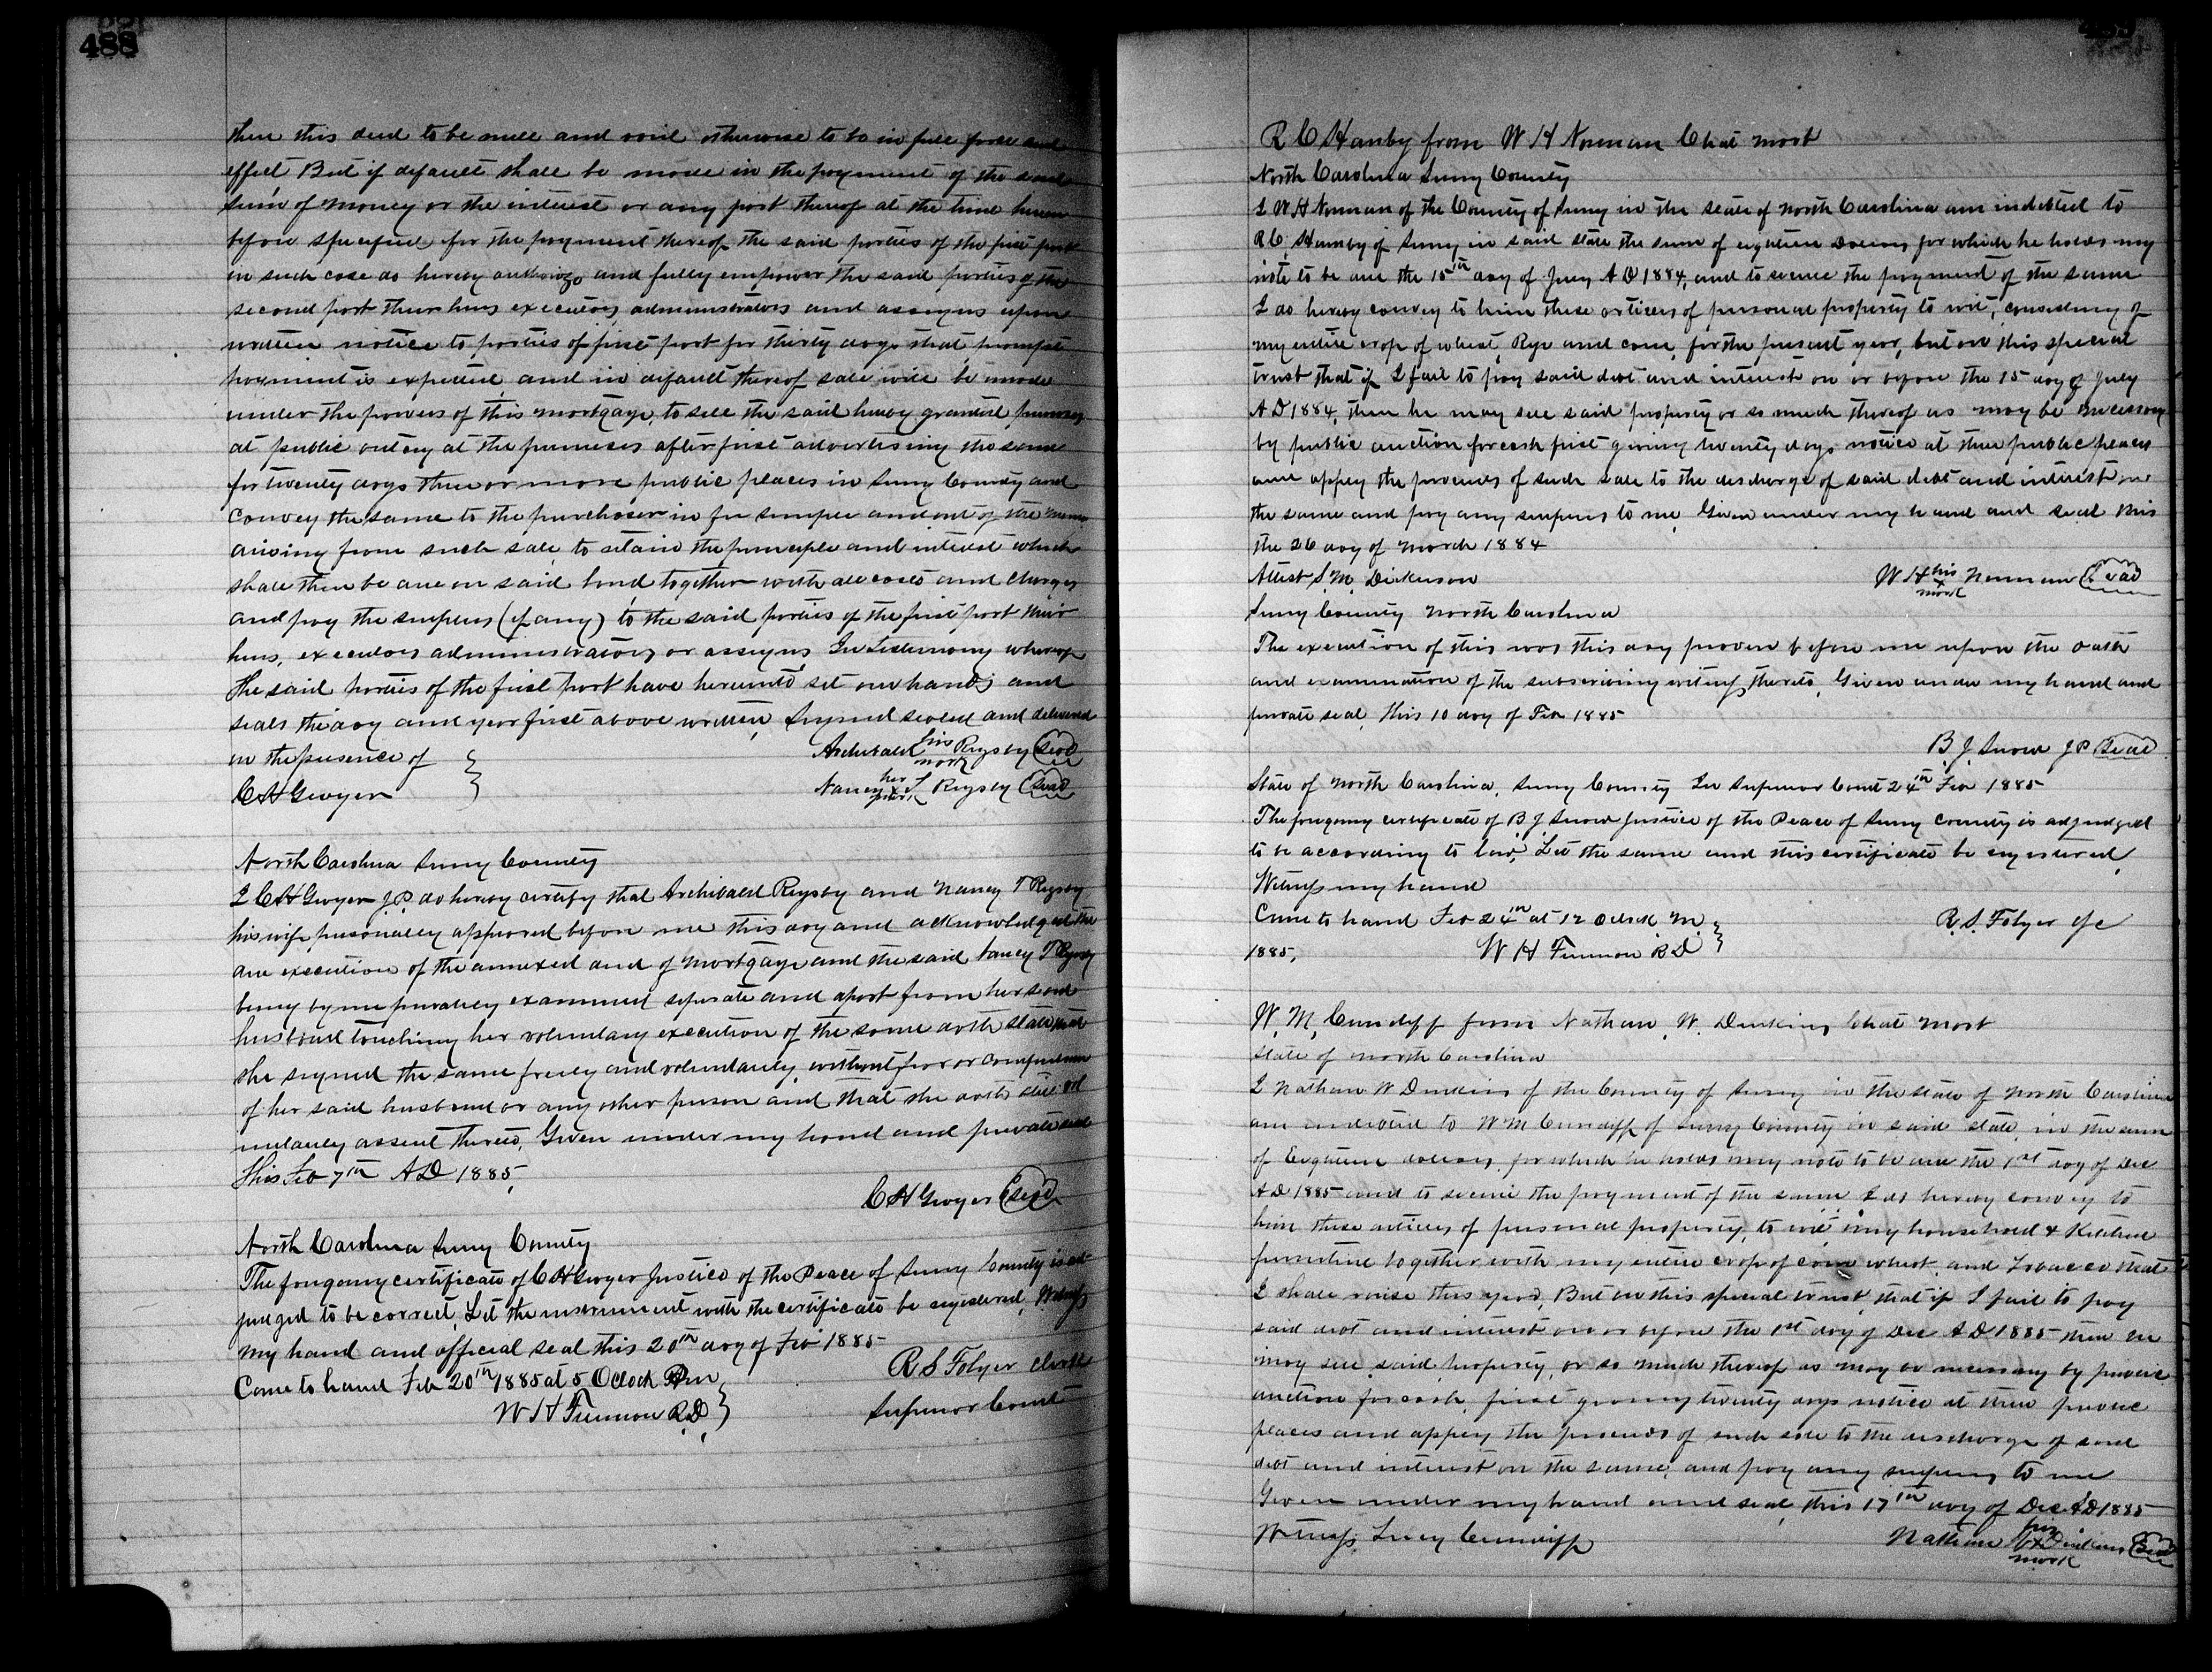 488
then this deed to be null and void otherwise to be in full force and
effect But if default shall be made in the payment of the said
sum of money or the interest or any part thereof at the time herein
before specified for the payment thereof the said parties of the first part
in such case do hereby authorize and fully empower the said parties of the
second part their heirs executors administrators and assigns upon
written notice to parties of first part for thirty days that prompt
payment is expected and in default thereof sale will be made
under the powers of this mortgage, to sell the said hereby granted premises
at public outcry at the premises after first advertising the same
for twenty days three or more public places in Surry County and
convey the same to the purchaser in fee simple and out of the
arising from such sale, to retain the principle and interest which
shall then be due on said bond together with all costs and charges
and pay the surplus (if any) to the said parties of the first part their
heirs, executors administrators or assigns In testimony whereof
the said parties of the first part have hereunto set our hands and
seals the day and year first above written, Signed sealed and delivered
in the presence of
C H Gwyer
Archibald his mark Rigsby Seal
Nancy her x mark T Rigsby Seal
North Carolina Surry County
I C H Gwyer J.P. do hereby certify that Archibald Rigsby and Nancy T Rigsby
his wife personally appeared before me this day and acknowledged the
due execution of the annexed deed of mortgage and the said Nancy T Rigsby
being by me privately examined separate and apart from her said
husband touching her voluntary execution of the same doth state that
she signed the same freely and voluntarily without fear or compulsion
of her said husband or any other person and that she doth still vol
untarily assent thereto, Given under my hand and private seal
this Feb 7th A D 1885,
C H Gwyer Seal
North Carolina Surry County
The foregoing certificate of C H Gwyer Justice of the Peace of Surry County is ad
judged to be correct, Let the instrument with the certificate be registered, Witness
my hand and official seal this 20th day of Feb 1885
Came to hand Feb 20th 1885 at 5 Oclock Pm
W H R.D.
R S Folger Clerk
Superior Court
R C Hanby from W H Norman Chat mort
North Carolina Surry County
I W H Norman of the County of Surry in the State of North Carolina am indebted to
R C Hamby of Surry in said state the sum of eighteen Dollars for which he holds my
note to be due the 15th day of July A D 1884, and to secure the payment of the same
I do hereby convey to him these articles of personal property to wit, consisting of
my entire crop of wheat, Rye and corn, for the present year, but on this special
trust that if I fail to pay said debt and interest on or before the 15 day of July
A D 1884, then he may sell said property or so much thereof as may be necessary
by public auction for cash first giving twenty days notice at three public places
and apply the proceeds of such sale to the discharge of said debt and interest on
the same and pay any surplus to me Given under my hand and seal this
the 26 day of March 1884
Attest S. M. Dickerson
W H his x mark Norman Seal
Surry County North Carolina
The execution of this was this day proven before me upon the oath
and examination of the subscribing witness thereto, Given under my hand and
private seal, this 10 day of Feb 1885
B. J. Snow J P Seal
State of North Carolina, Surry County In Superior Court 24th Feb 1885
The foregoing certificate of B. J. Snow Justice of the Peace of Surry County is adjudged
to be according to law, Let the same and this certificate be registered,
Witness my hand
Came to hand Feb 24th at 12 Oclock M.
1885, W H R D
R. S. Folger
W. M. Cundiff from Nathan W. Dinkins Chat Mort
State of North Carolina
I Nathan W Dinkins of the County of Surry in the State of North Carolina
am indebted to W M Cundiff of Surry County in said state, in the sum
of Eighteen dollars, for which he holds my note to be due the 1st day of Dec
A D 1885 and to secure the payment of the same I do hereby convey to
him these articles of personal property, to wit, my household & Kitchen
furniture together with my entire crop of corn wheat, and Tobacco that
I shall raise this year, But on this special trust, that if I fail to pay
said debt and interest on or before the 1st day of Dec A D 1885 then he
may sell said property, or so much thereof as may be necessary by public
auction for cash, first giving twenty days notice at three public
places and apply the proceeds of such sale to the discharge of said
debt and interest on the same, and pay any surplus to me
Given under my hand and seal, this 17th day of Dec A D 1885
Witness, Lucy Cundiff
Nathan W his x mark Dinkins Seal